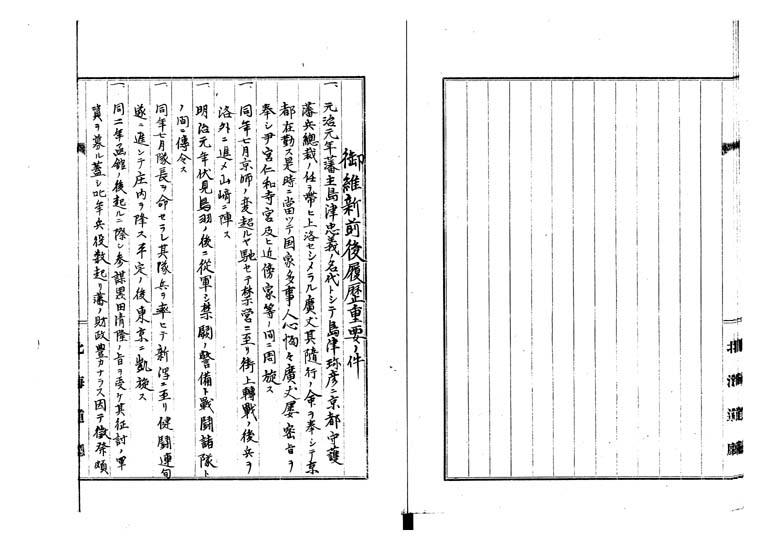 御維新前後履歴重要ノ件
一、元治元年藩主島津忠義ノ名代トシテ島津珍彦ニ京都守護
藩兵總裁ノ任ヲ帶ヒ上洛セシメラル廣丈其隨行ノ命ヲ奉シテ京
都在勤ス是時ニ當ツテ国家多事人心恟々廣丈屡密旨ヲ
奉シ尹宮仁和寺宮及ヒ近傍家等ノ間ニ周旋ス
一、同年七月京師ノ変起ルヤ馳セテ禁営ニ至リ街上轉戰ノ後兵ヲ
洛外ニ進メ山崎ニ陣ス
一、明治元年伏見鳥羽ノ後ニ從軍シ禁闕ノ警備ト戰鬪諸隊ト
ノ間ニ傳令ス
一、同年七月隊長ヲ命セラレ其隊兵ヲ率ヒテ新潟ニ至リ健鬪連旬
遂ニ進シテ庄内ヲ降ス平定ノ後東京ニ凱旋ス
一、同二年函館ノ後起ルニ際シ参謀黒田清隆ノ旨ヲ受ケ其征討ノ軍
資ヲ募ル蓋シ此年兵役数起リ藩ノ財政豊カナラス因テ徴發頗
北海道廳